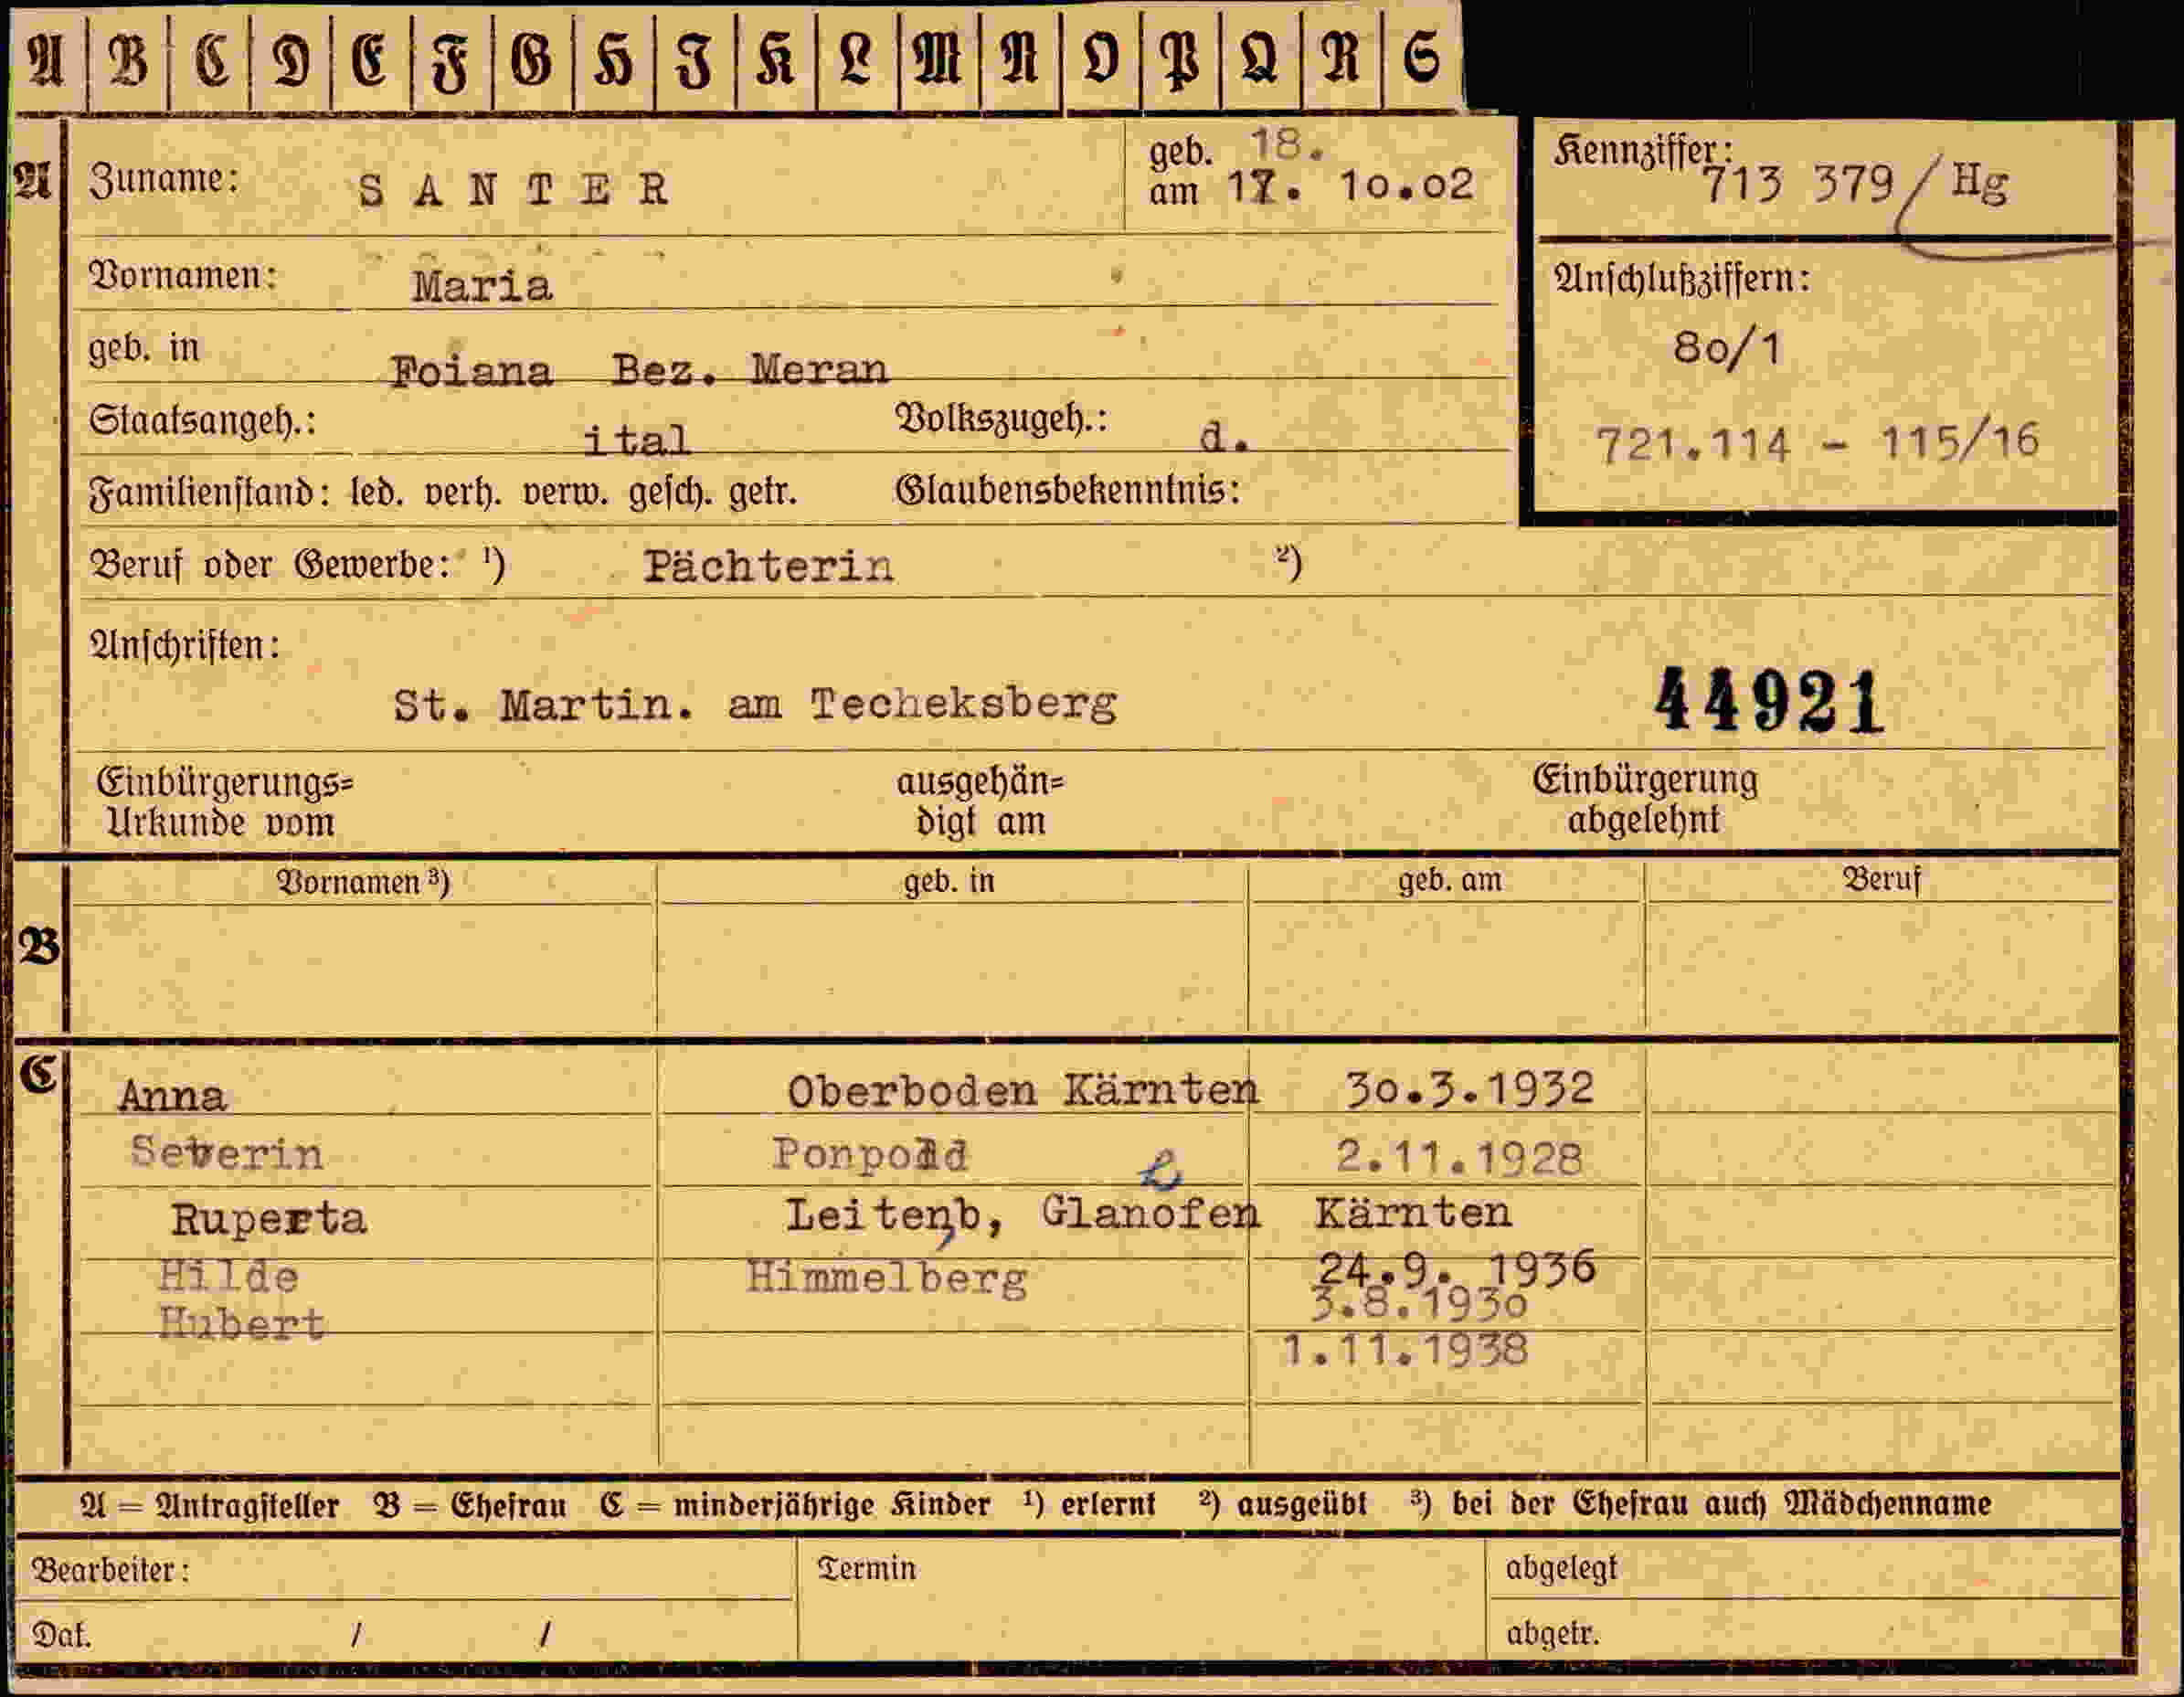 A B C D E F G H I K L M N O P Q R S
A Zuname: SANTER geb. am 18. 17. 10.02 Kennziffer: 713 379/Hg
Vornamen: Maria
Anschlußziffern:
geb. in Foiana Bez. Meran
80/1
Staatsangeh.: ital Volkszugeh.: d.
721.114 - 115/16
Familienstand: led. verh. verw. gesch. getr. Glaubensbekenntnis:
Beruf oder Gewerbe: ¹) Pächterin ²)
Anschriften:
St. Martin. am Techeksberg 44921
Einbürgerungs= Urkunde vom ausgehän= digt am Einbürgerung abgelehnt
Vornamen ³) geb. in geb. am Beruf
B
C
Anna Oberboden Kärnten 30.3.1932
Severin 2.11.1928
Ruperta Leitenb, Glanofen Kärnten
24.9. 1936
Hilde Himmelberg 3.8.1930
Hubert 1.11.1938
A = Antragsteller B = Ehefrau C = minderjährige Kinder ¹) erlernt ²) ausgeübt ³) bei der Ehefrau auch Mädchenname
Bearbeiter: Termin abgelegt
Dat. / / abgetr.